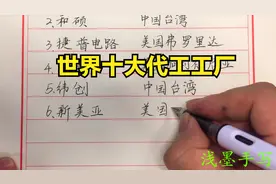 2.和硕 中国台湾
3.捷普电路 美国弗罗里达
世界十大代工工厂
5.纬创 中国台湾
6.新美亚 美国
浅墨手写